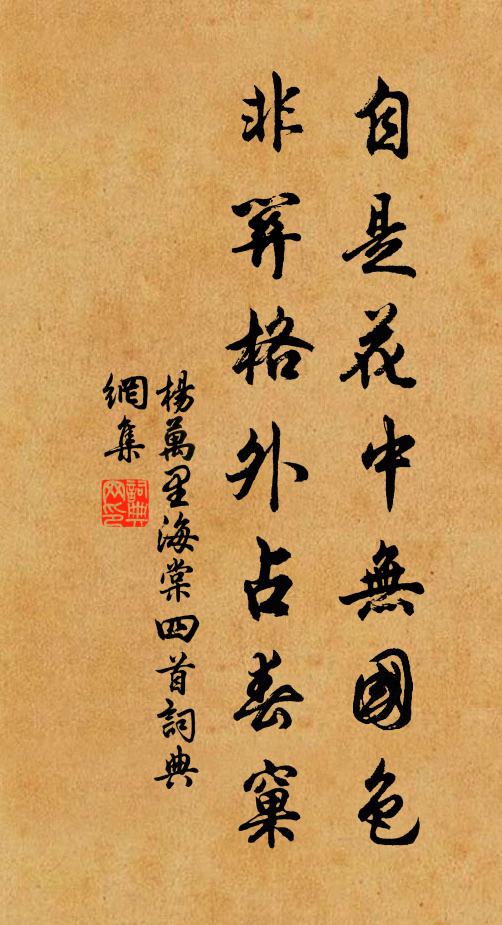 自是花中無國色
非關格外占春窠
楊萬里海棠四首詞典
網集
詞典
网印